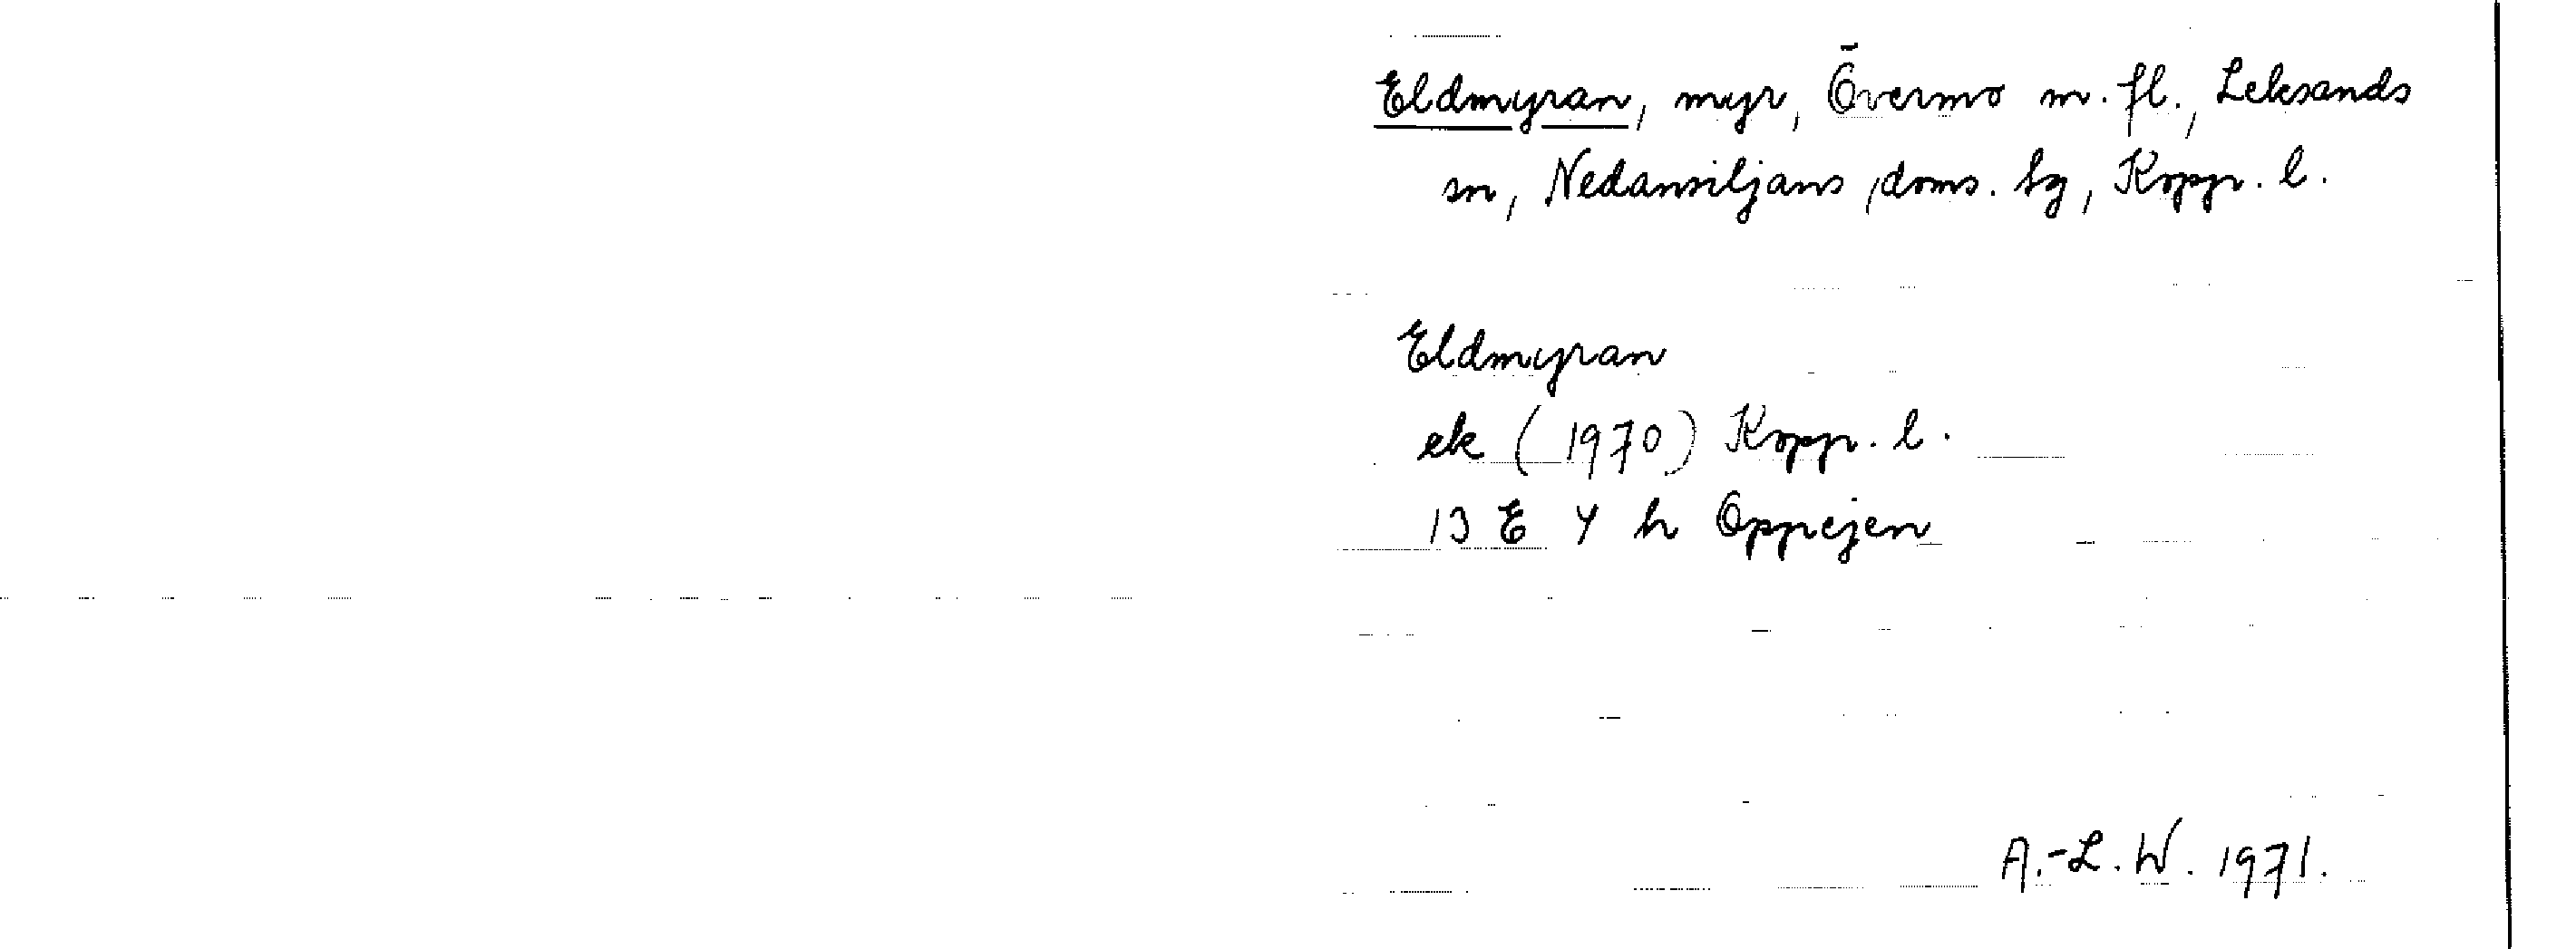 Eldmyran, myr, Övermo m. fl., Leksands
sn, Nedansiljans doms. hg, Kopp. l.
Eldmyran
ek (1970) Kopp. l.
13 E 4 h Oppejen
A.-L. W. 1971.